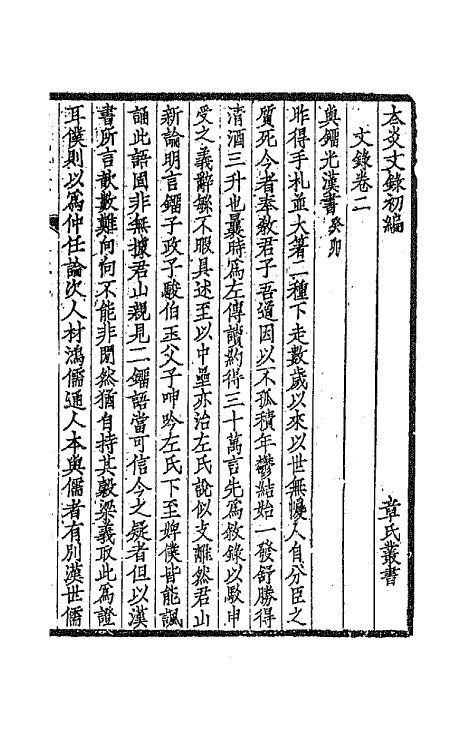 太炎文錄初編
章氏叢書
文錄卷二
與鎦光漢書癸卯
昨得手札並大箸二種下走數歲以來以世無慢人自分臣之
質死今者奉教君子吾道因以不孤積年鬱結始一發舒勝得
清酒三升也曩時爲左傳讀約得三十萬言先爲敘錄以駮申
受之義辭繇不暇具述至以中壘亦治左氏說似支離然君山
新論明言鎦子政子駿伯玉父子呻吟左氏下至婢僕皆能諷
誦此語固非無據君山親見二鎦語當可信今之疑者但以漢
書所言歆數難向向不能非閒然猶自持其穀梁義取此爲證
耳僕則以爲仲任論次人材鴻儒通人本與儒者有別漢世儒